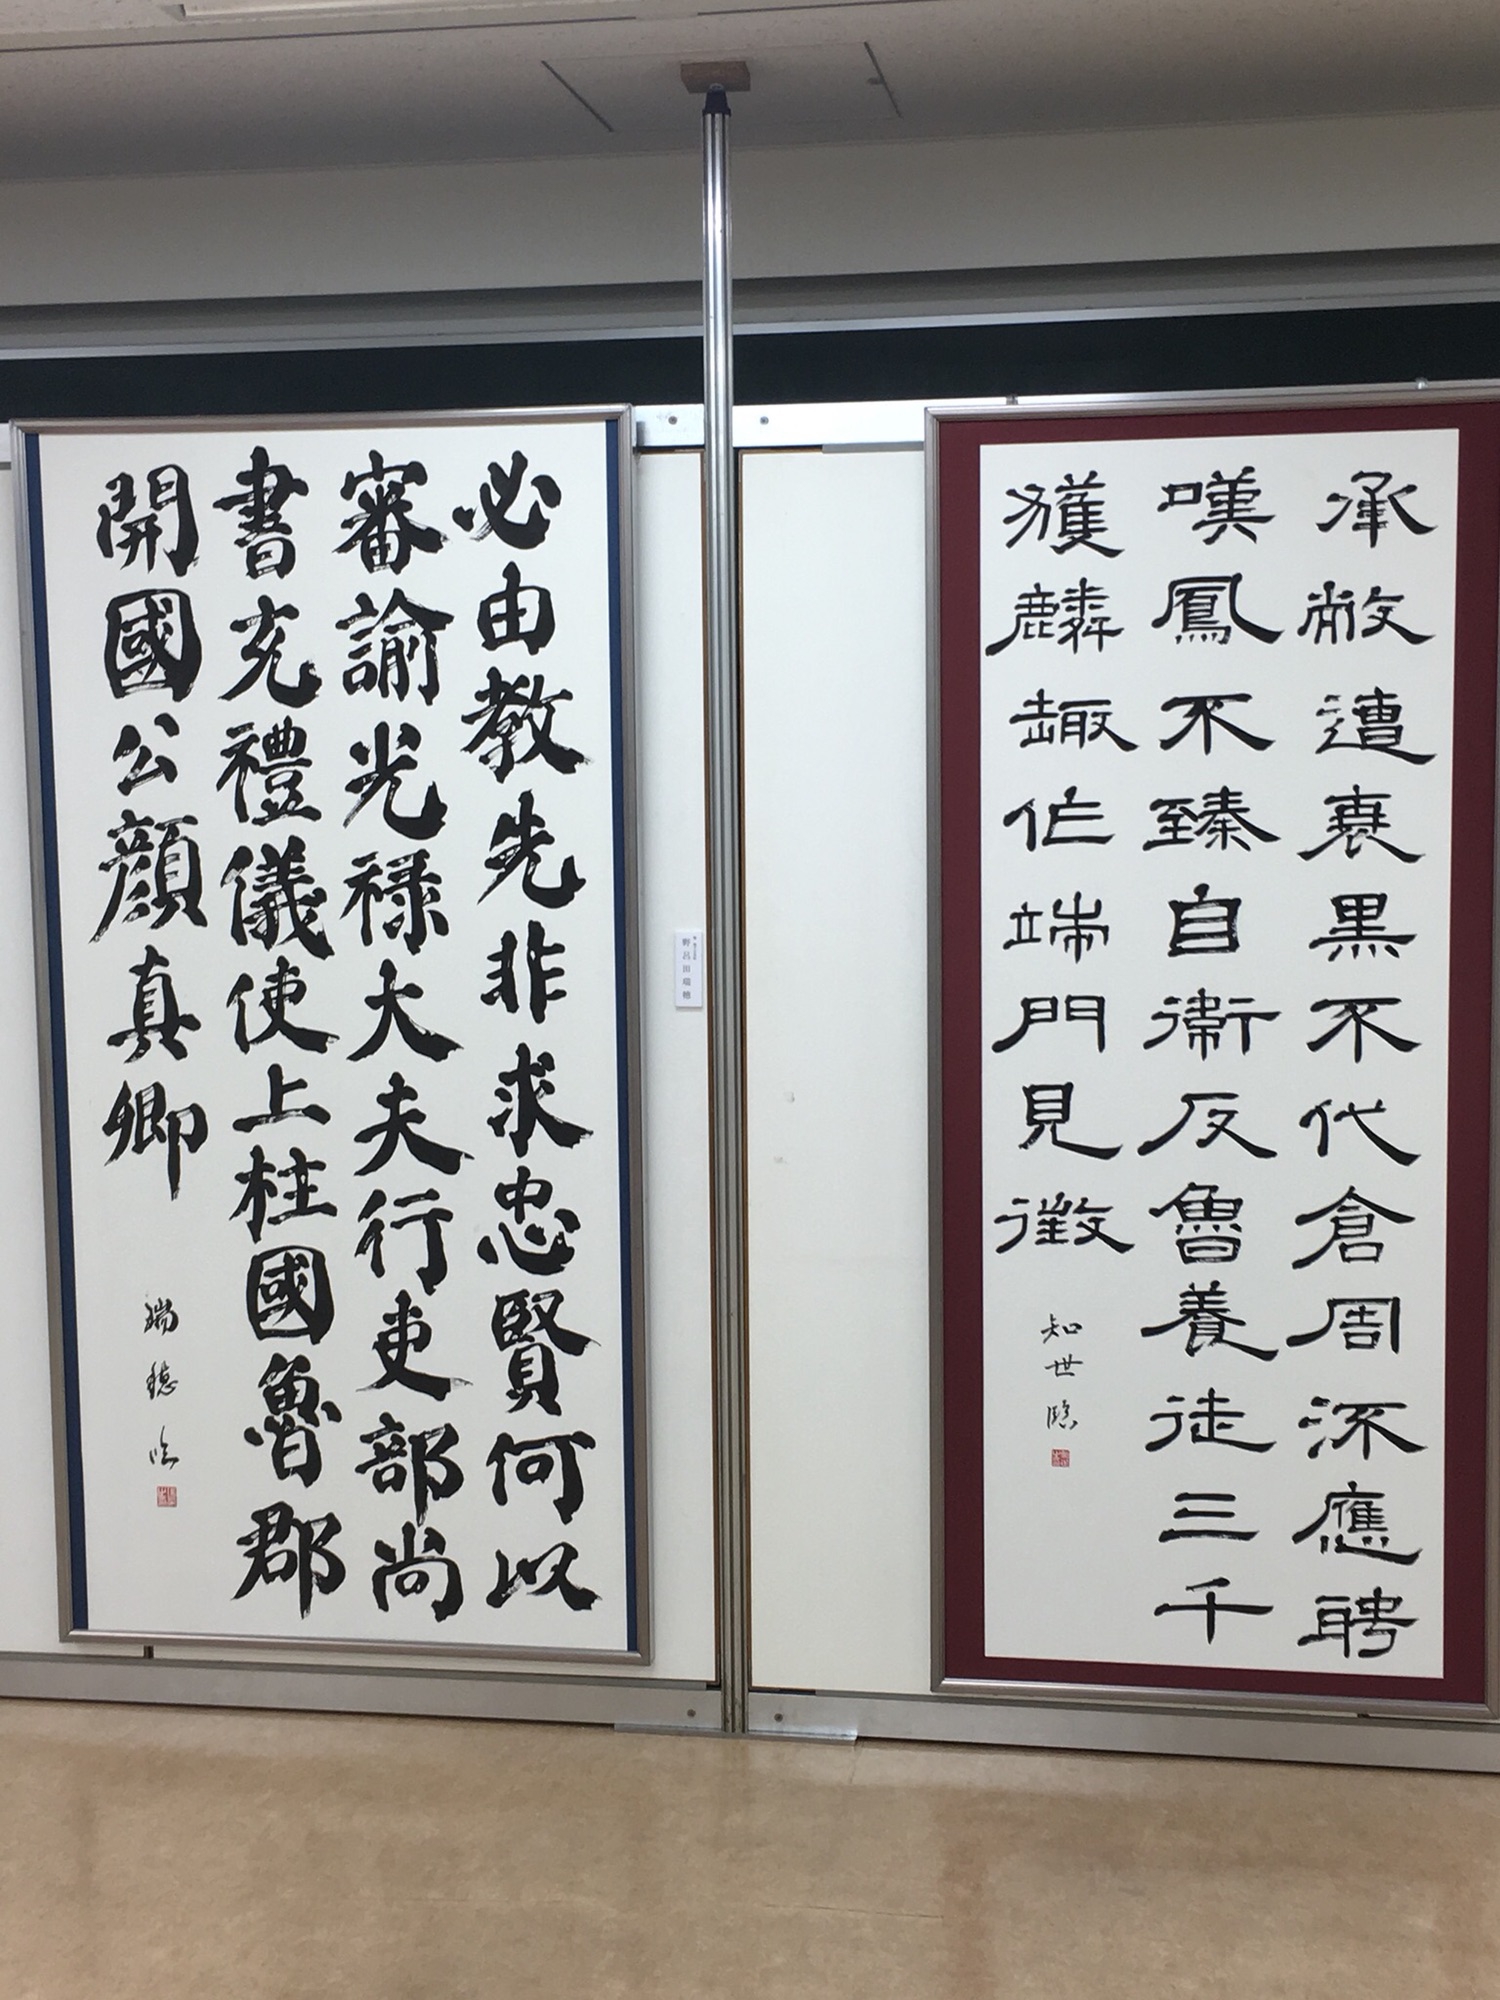 承敝遭衰黒不代倉周流應聘
嘆鳳不臻自衞反魯養徒三千
獲麟趣作端門見徴
知世臨
野呂田瑞穂
必由教先非求忠賢何以
審諭光禄大夫行吏部尚
書充禮儀使上柱國魯郡
開國公顔真卿
瑞穂臨